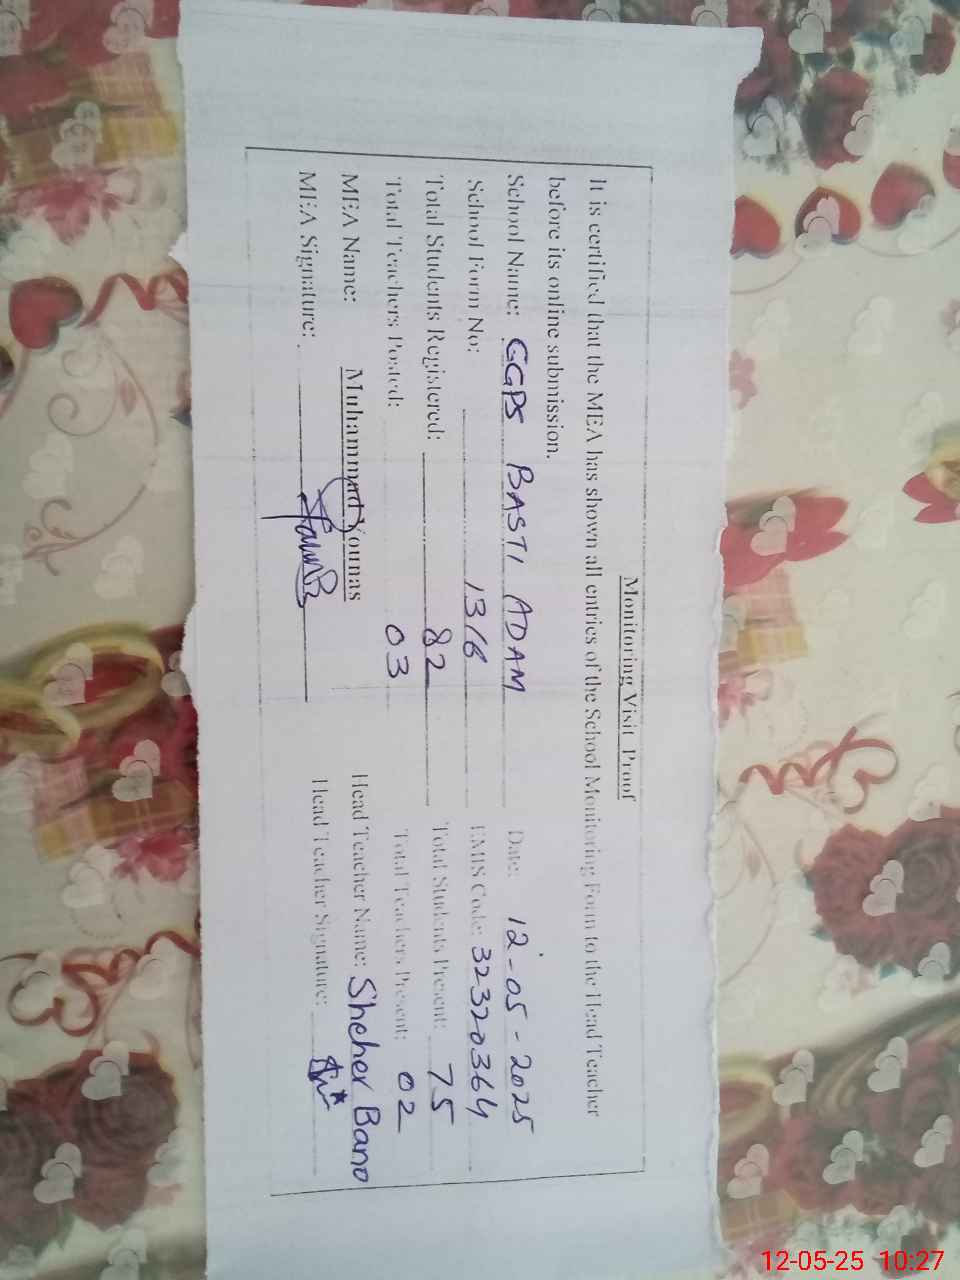 Monitoring Visit Proof
It is certified that the MEA has shown all entries of the School Monitoring Form to the Head Teacher
before its online submission.
School Name: GGPS BASTI ADAM Date: 12-05-2025
School Form No: 1316 EMIS Code: 32320364
Total Students Registered: 82 Total Students Present: 75
Total Teachers Posted: 03 Total Teachers Present: 02
MEA Name: Muhammad Younas Head Teacher Name: Sheher Bano
MEA Signature: Head Teacher Signature:
12-05-25 10:27